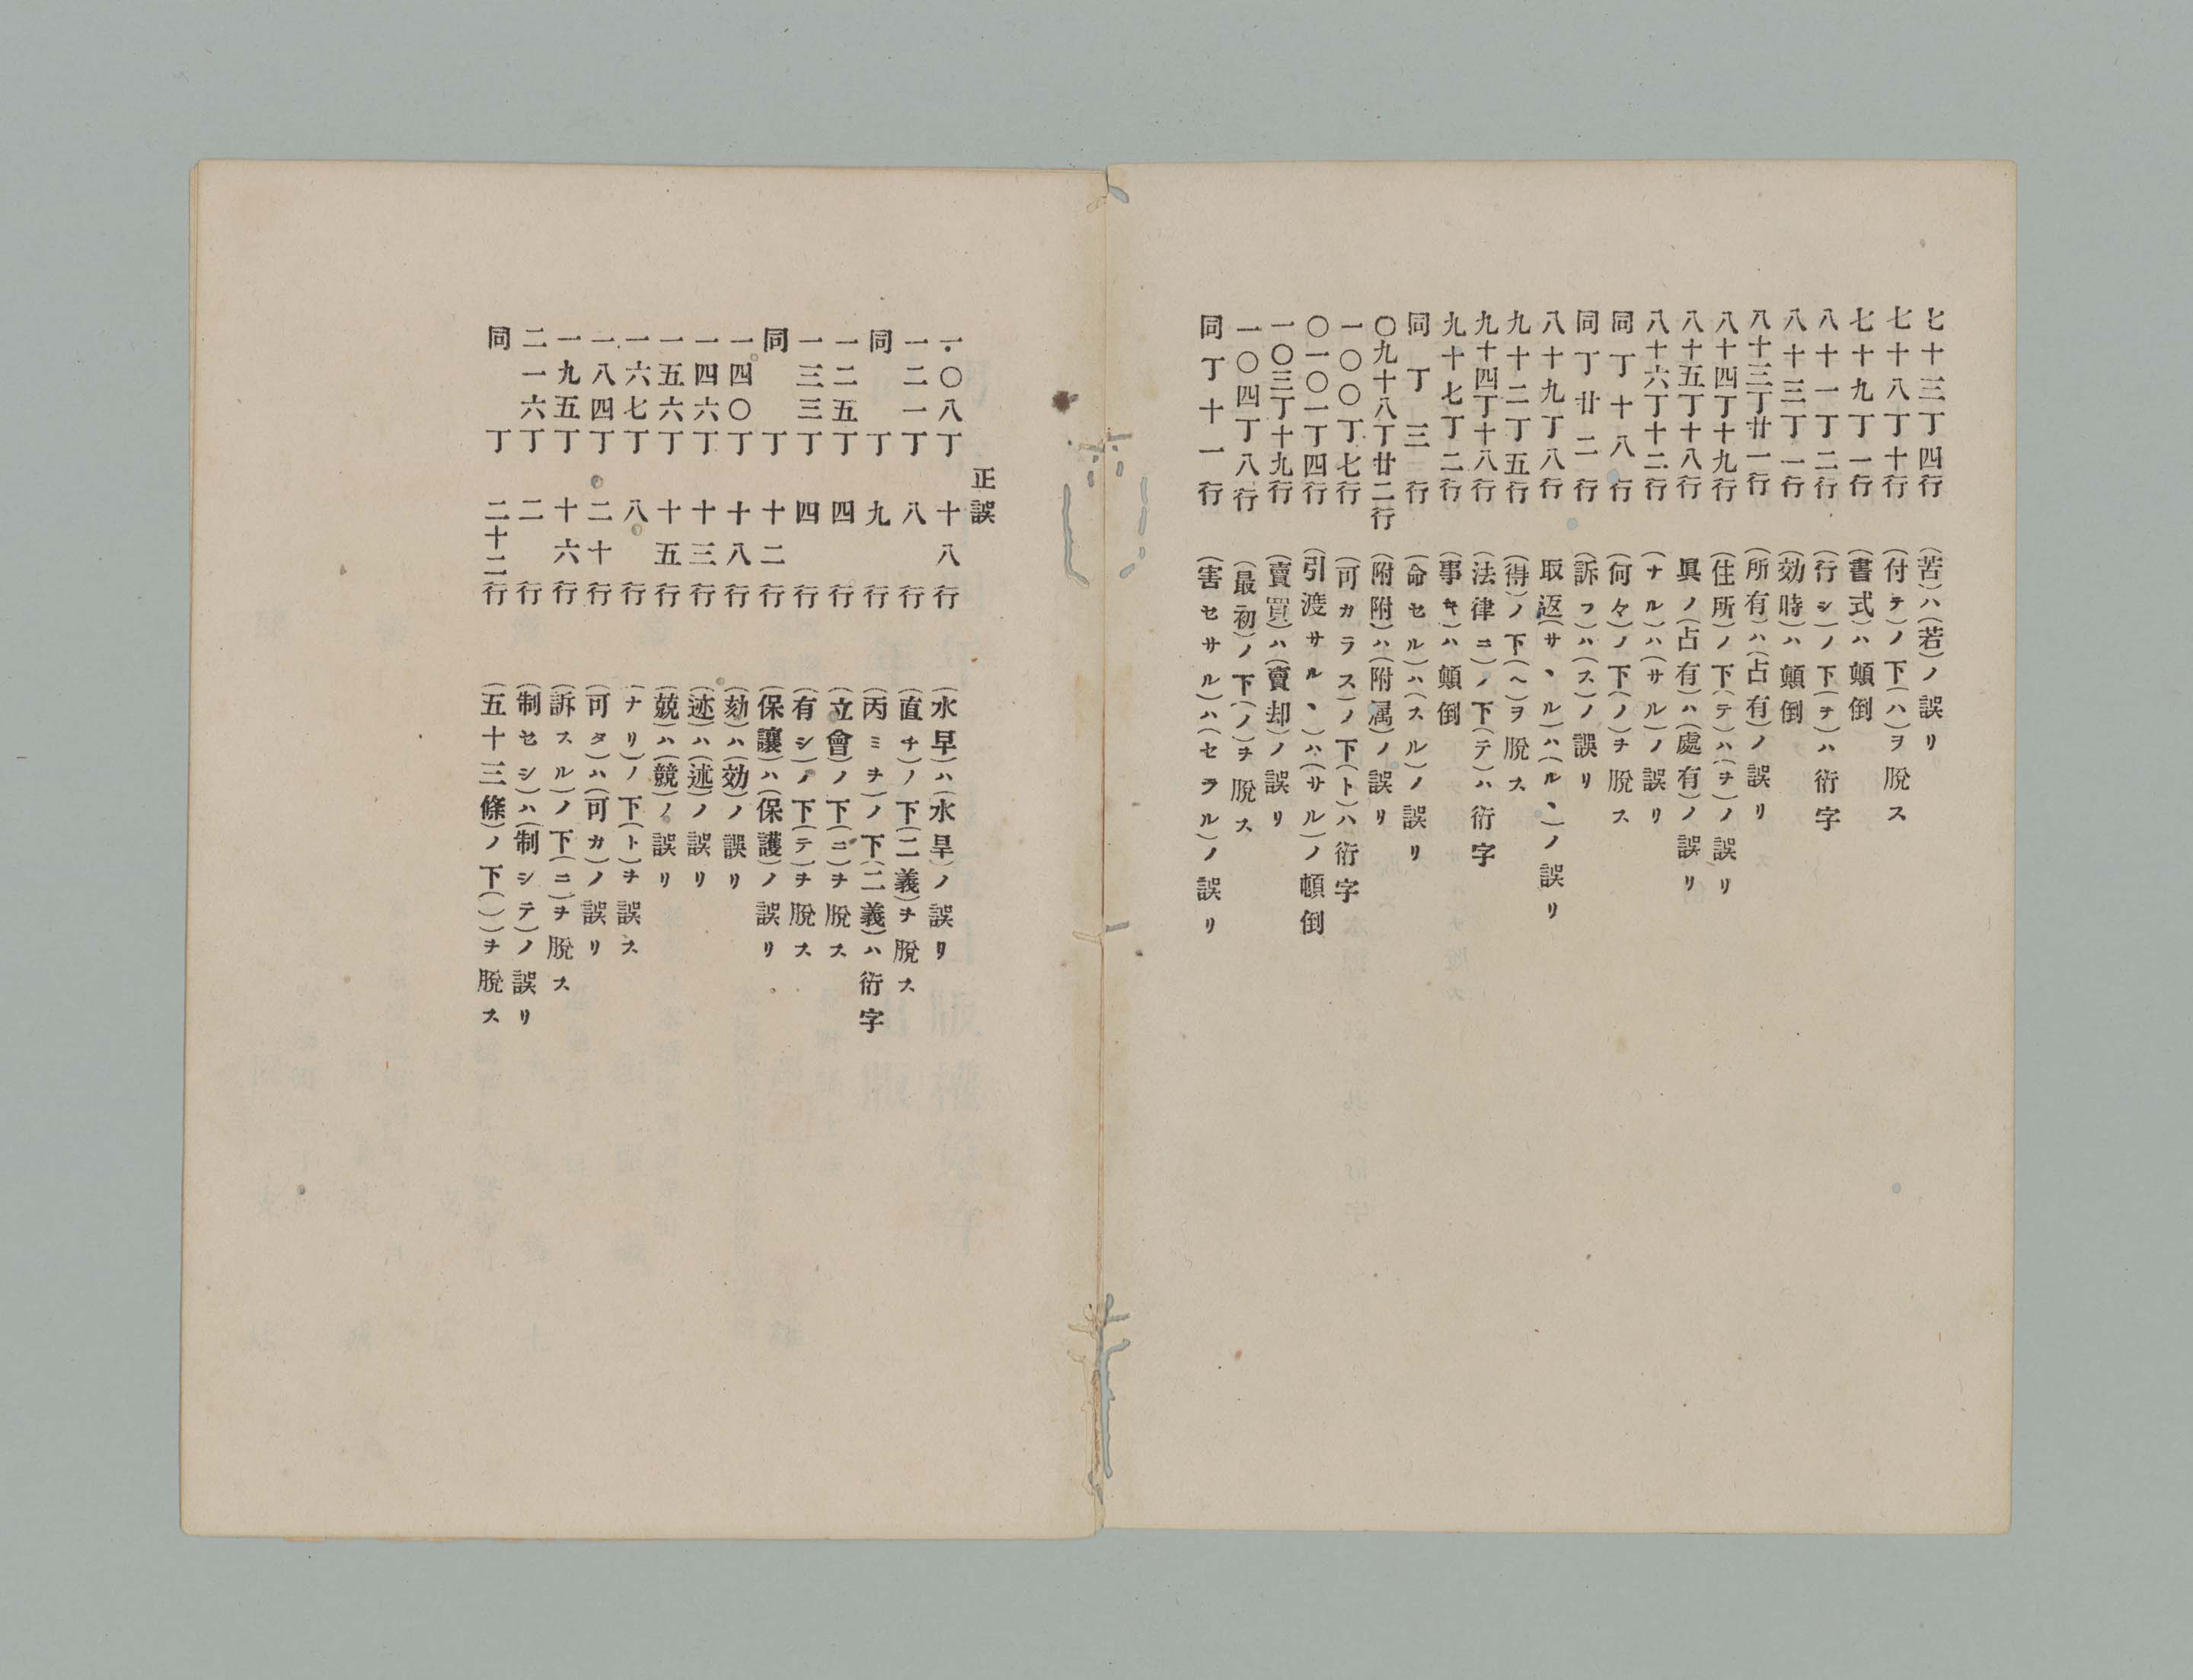 七十三丁四行 (苦)ハ(若)ノ誤リ
七十八丁十行 (付テ)ノ下(ハ)ヲ脱ス
七十九丁一行 (書式)ハ顛倒
八十一丁二行 (行シ)ノ下(チ)ハ衍字
八十三丁一行 (効時)ハ顛倒
八十三丁廿一行 (所有)ハ(占有)ノ誤リ
八十四丁十九行 (住所)ノ下(テ)ハ(ヲ)ノ誤リ
八十五丁十八行 眞ノ(占有)ハ(處有)ノ誤リ
八十六丁十二行 (ナル)ハ(サル)ノ誤リ
同丁十八行 (何々)ノ下(ノ)チ脱ス
同丁廿二行 (訴フ)ハ(ス)ノ誤リ
八十九丁八行 取返(サヽル)ハ(ルヽ)ノ誤リ
九十二丁五行 (得)ノ下(ヘ)ヲ脱ス
九十四丁十八行 (法律ニ)ノ下(テ)ハ衍字
九十七丁二行 (事キ)ハ顛倒
同丁三行 (命セル)ハ(スル)ノ誤リ
〇九十八丁廿二行 (附附)ハ(附属)ノ誤リ
一〇〇丁七行 (可カラス)ノ下(ト)ハ衍字
〇一〇一丁四行 (引渡サルヽ)ハ(サル)ノ頓倒
一〇三丁十九行 (賣買)ハ(賣却)ノ誤リ
一〇四丁八行 (最初)ノ下(ノ)チ脱ス
同丁十一行 (害セサル)ハ(セラル)ノ誤リ
正誤
一〇八丁 十八行 (水早)ハ(水旱)ノ誤リ
一二一丁 八行 (直チ)ノ下(二義)チ脱ス
同丁 九行 (丙ミチ)ノ下(二義)ハ衍字
一二五丁 四行 (立會)ノ下(ニ)チ脱ス
一三三丁 四行 (有シ)ノ下(テ)チ脱ス
同丁 十二行 (保讓)ハ(保護)ノ誤リ
一四〇丁 十八行 (劾)ハ(効)ノ誤リ
一四六丁 十三行 (迹)ハ(述)ノ誤リ
一五六丁 十五行 (兢)ハ(競)ノ誤リ
一六七丁 八行 (ナリ)ノ下(ト)チ誤ス
一八四丁 二十行 (可タ)ハ(可カ)ノ誤リ
一九五丁 十六行 (訴スル)ノ下(ニ)チ脱ス
二一六丁 二行 (制セシ)ハ(制シテ)ノ誤リ
同丁 二十二行 (五十三條)ノ下(﹀)チ脱ス